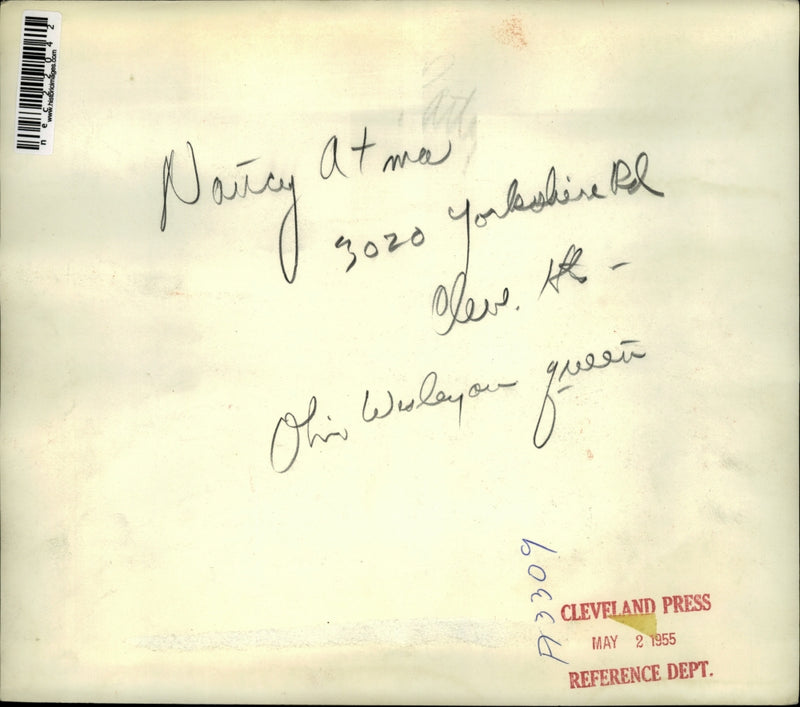 www.historicimages.com
nec22042
Nancy Atma
3020 Yorkshire Rd
Cleve. Hts -
Ohio Wesleyan queen
A3309
CLEVELAND PRESS
MAY 2 1955
REFERENCE DEPT.